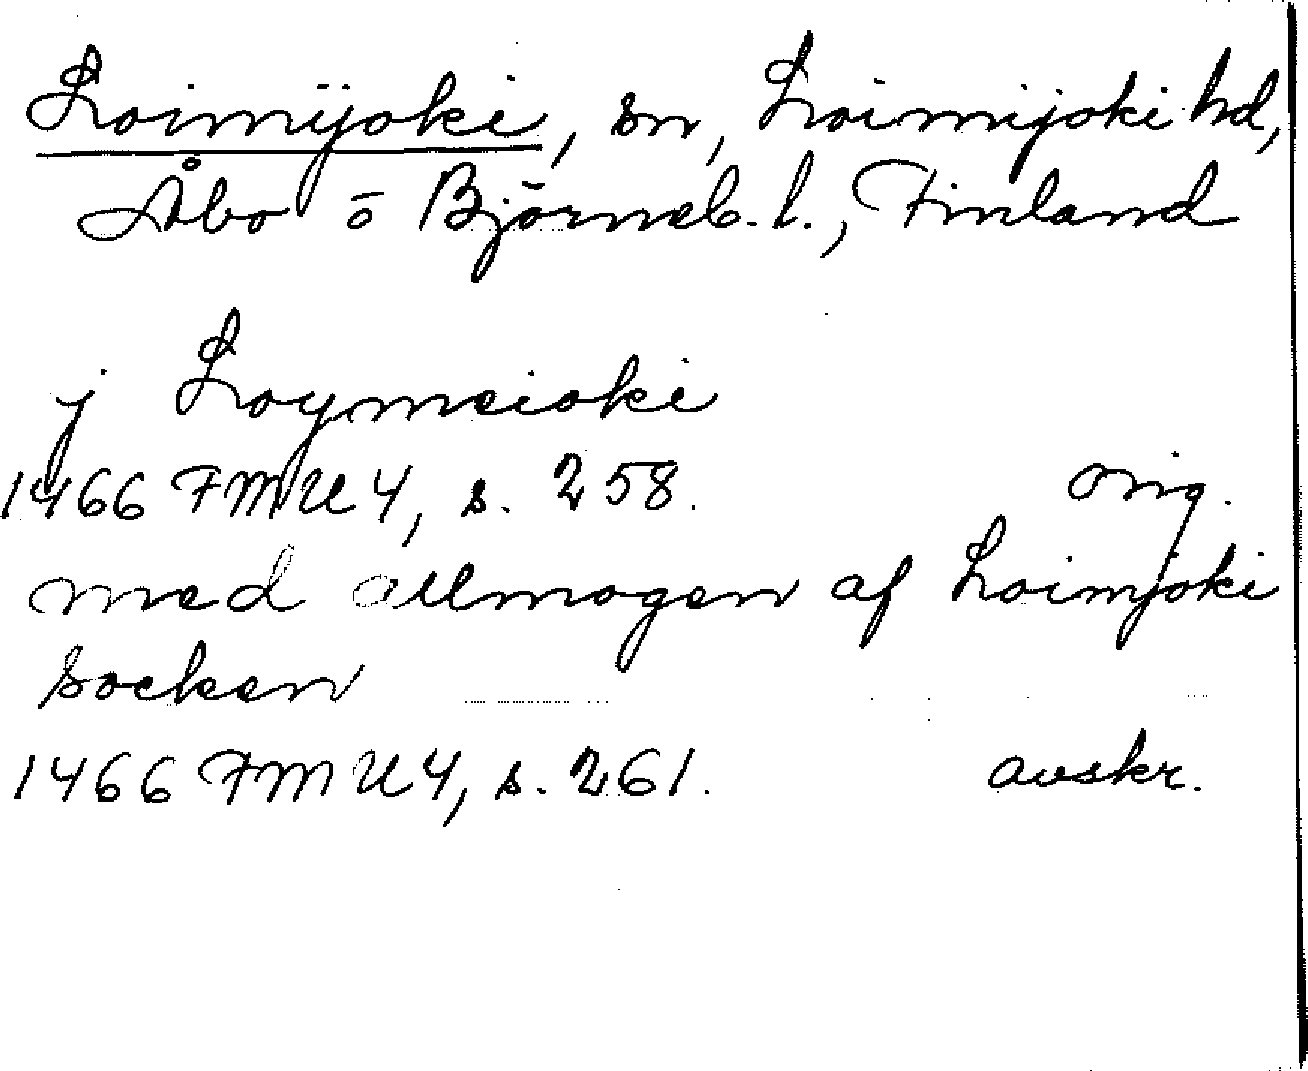 Loimijoki, sn, Loimijoki hd,
Åbo o Björneb. l., Finland
j Loymeioki
1466 FMU 4, s. 258. orig.
med allmogen af Loimjoki
socken
1466 FMU 4, s. 261. avskr.